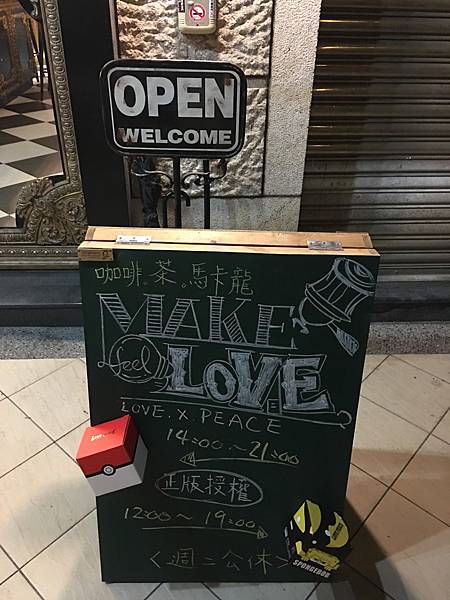 OPEN
WELCOME
咖啡。茶。馬卡龍
MAKE
feel
LOVE
LOVE. X PEACE
14:00.~21:00
正版授權
12:00~19:00
<週二公休>
SPONGEBOB